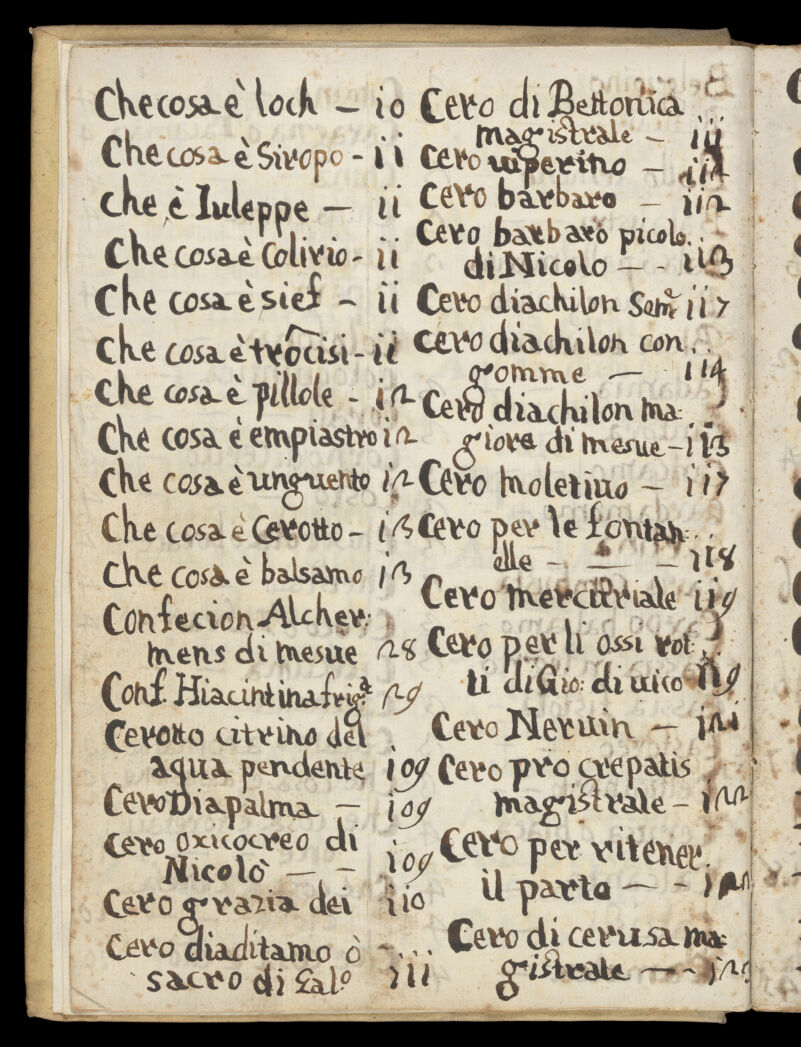 Che cosa è loch – io
Che cosa è Siropo - ii
Che è Iuleppe – ii
Che cosa è Colirio - ii
Che cosa è sief – ii
Che cosa è trocisi - ii
Che cosa è pillole - i2
Che cosa è empiastro i2
Che cosa è unguento i2
Che cosa è Cerotto – i3
Che cosa è balsamo i3
Confecion Alcher:
mens di mesue 28
Conf. Hiacintina frigª 29
Cerotto citrino del
aqua pendente i09
Cero Diapalma – i09
Cero oxicocreo di
Nicolò – – i09
Cero grazia dei iio
Cero diaditamo ò
sacro di Galº iii
Cero di Bettonica
magistrale – iii
Cero uiperino –
Cero barbaro – ii2
Cero barbaro picolo
di Nicolo – - ii3
Cero diachilon Semᵉ ii7
Cero diachilon con
gomme – ii4
Cero diachilon ma:
giore di mesue – ii3
Cero moletiuo – ii7
Cero per le fontan:
elle - — – ii8
Cero mercuriale ii9
Cero per li ossi rot
ti di Gio: di uico ii9
Cero Neruin – i2i
Cero pro crepatis
magistrale – i22
Cero per ritener
il parto – -
Cero di cerusa ma:
gistrale – -